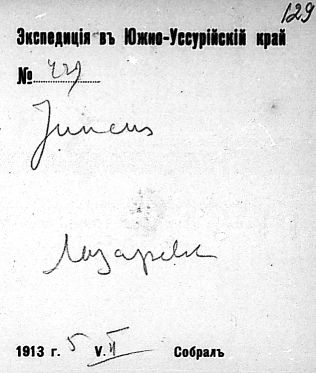 129
Экспедиція въ Южно-Уссурійскій край
№ 429
Juncus
Лазаревк
1913 г. 5 V.II Собралъ